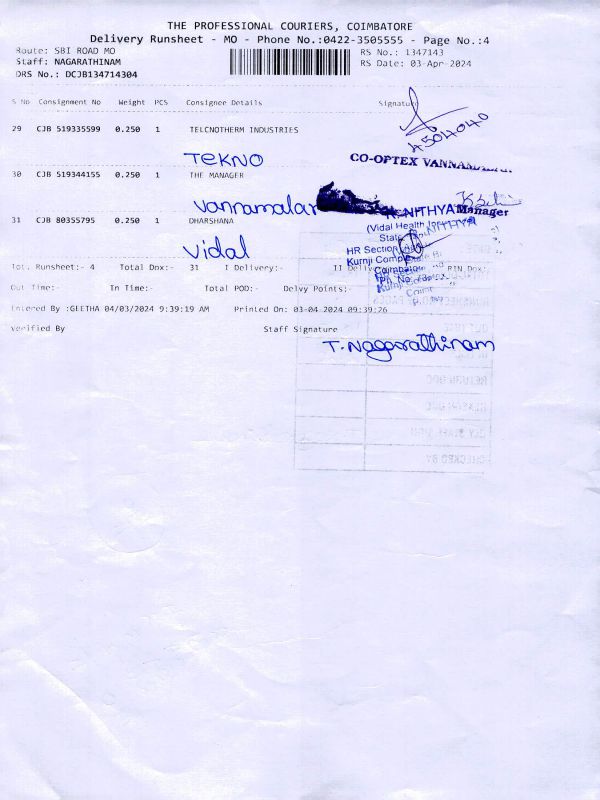 THE PROFESSIONAL COURIERS, COIMBATORE
Delivery Runsheet - MO - Phone No.:0422-3505555 - Page No.:4
Route: SBI ROAD MO RS No.: 1347143
Staff: NAGARATHINAM RS Date: 03-Apr-2024
DRS No.: DCJB134714304
S No Consignment No Weight PCS Consignee Details Signature
4504040
29 CJB 519335599 0.250 1 TELCNOTHERM INDUSTRIES
TEKNO CO-OPTEX
30 CJB 519344155 0.250 1 THE MANAGER
Vannamalar NITHYA Manager
31 CJB 80355795 0.250 1 DHARSHANA
(Vidal Health
HR Section
Vidal
Tot. Runsheet:- 4 Total Dox:- 31 I Delivery:-
Out Time: In Time:- Total POD:- Delvy Points:-
Entered By :GEETHA 04/03/2024 9:39:19 AM Printed On: 03-04-2024 09:39:26
Verified By Staff Signature
T. Nagarathinam